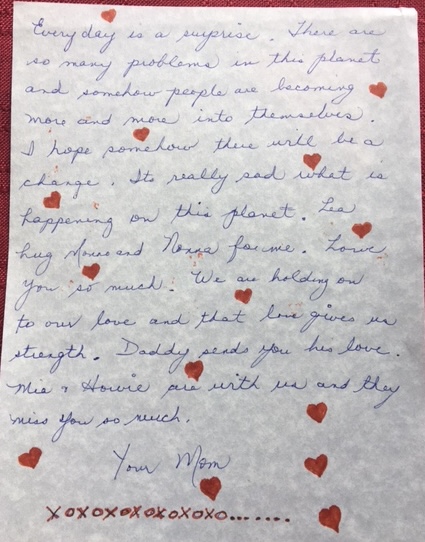 Everyday is a surprise. There are
so many problems in this planet
and somehow people are becoming
more and more into themselves.
I hope somehow there will be a
change. Its really sad what is
happening on this planet. Lea
hug and Nonna for me. Love
you so much. We are holding on
to our love and that love gives us
strength. Daddy sends you his love.
Mia & Howie are with us and they
miss you so much.
Your Mom
xoxoxoxoxoxoxo.......